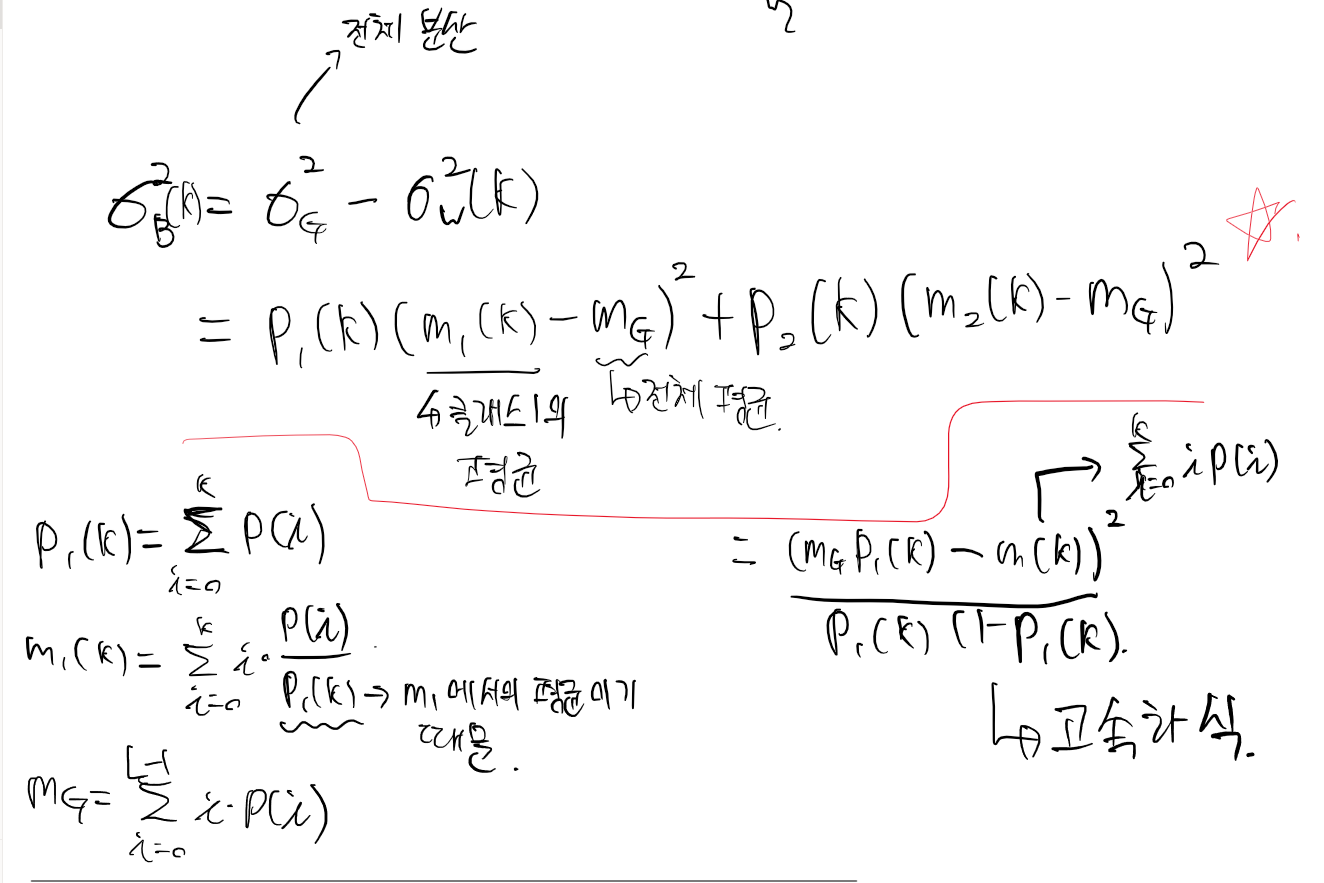 전체 분산
σ_B^2(k) = σ_G^2 - σ_W^2(k)
= P_1(k)(m_1(k) - m_G)^2 + P_2(k)(m_2(k) - m_G)^2
↳클래스1의 평균
↳전체 평균.
P_1(k) = Σ_{i=0}^{k} P(i)
m_1(k) = Σ_{i=0}^{k} i · P(i)/P_1(k) → m_1 에서의 평균이기
때문.
m_G = Σ_{i=0}^{L-1} i · P(i)
→ Σ_{i=0}^{k} i P(i)
= (m_G P_1(k) - m(k))^2 / P_1(k) (1-P_1(k).
↳고속화 식.